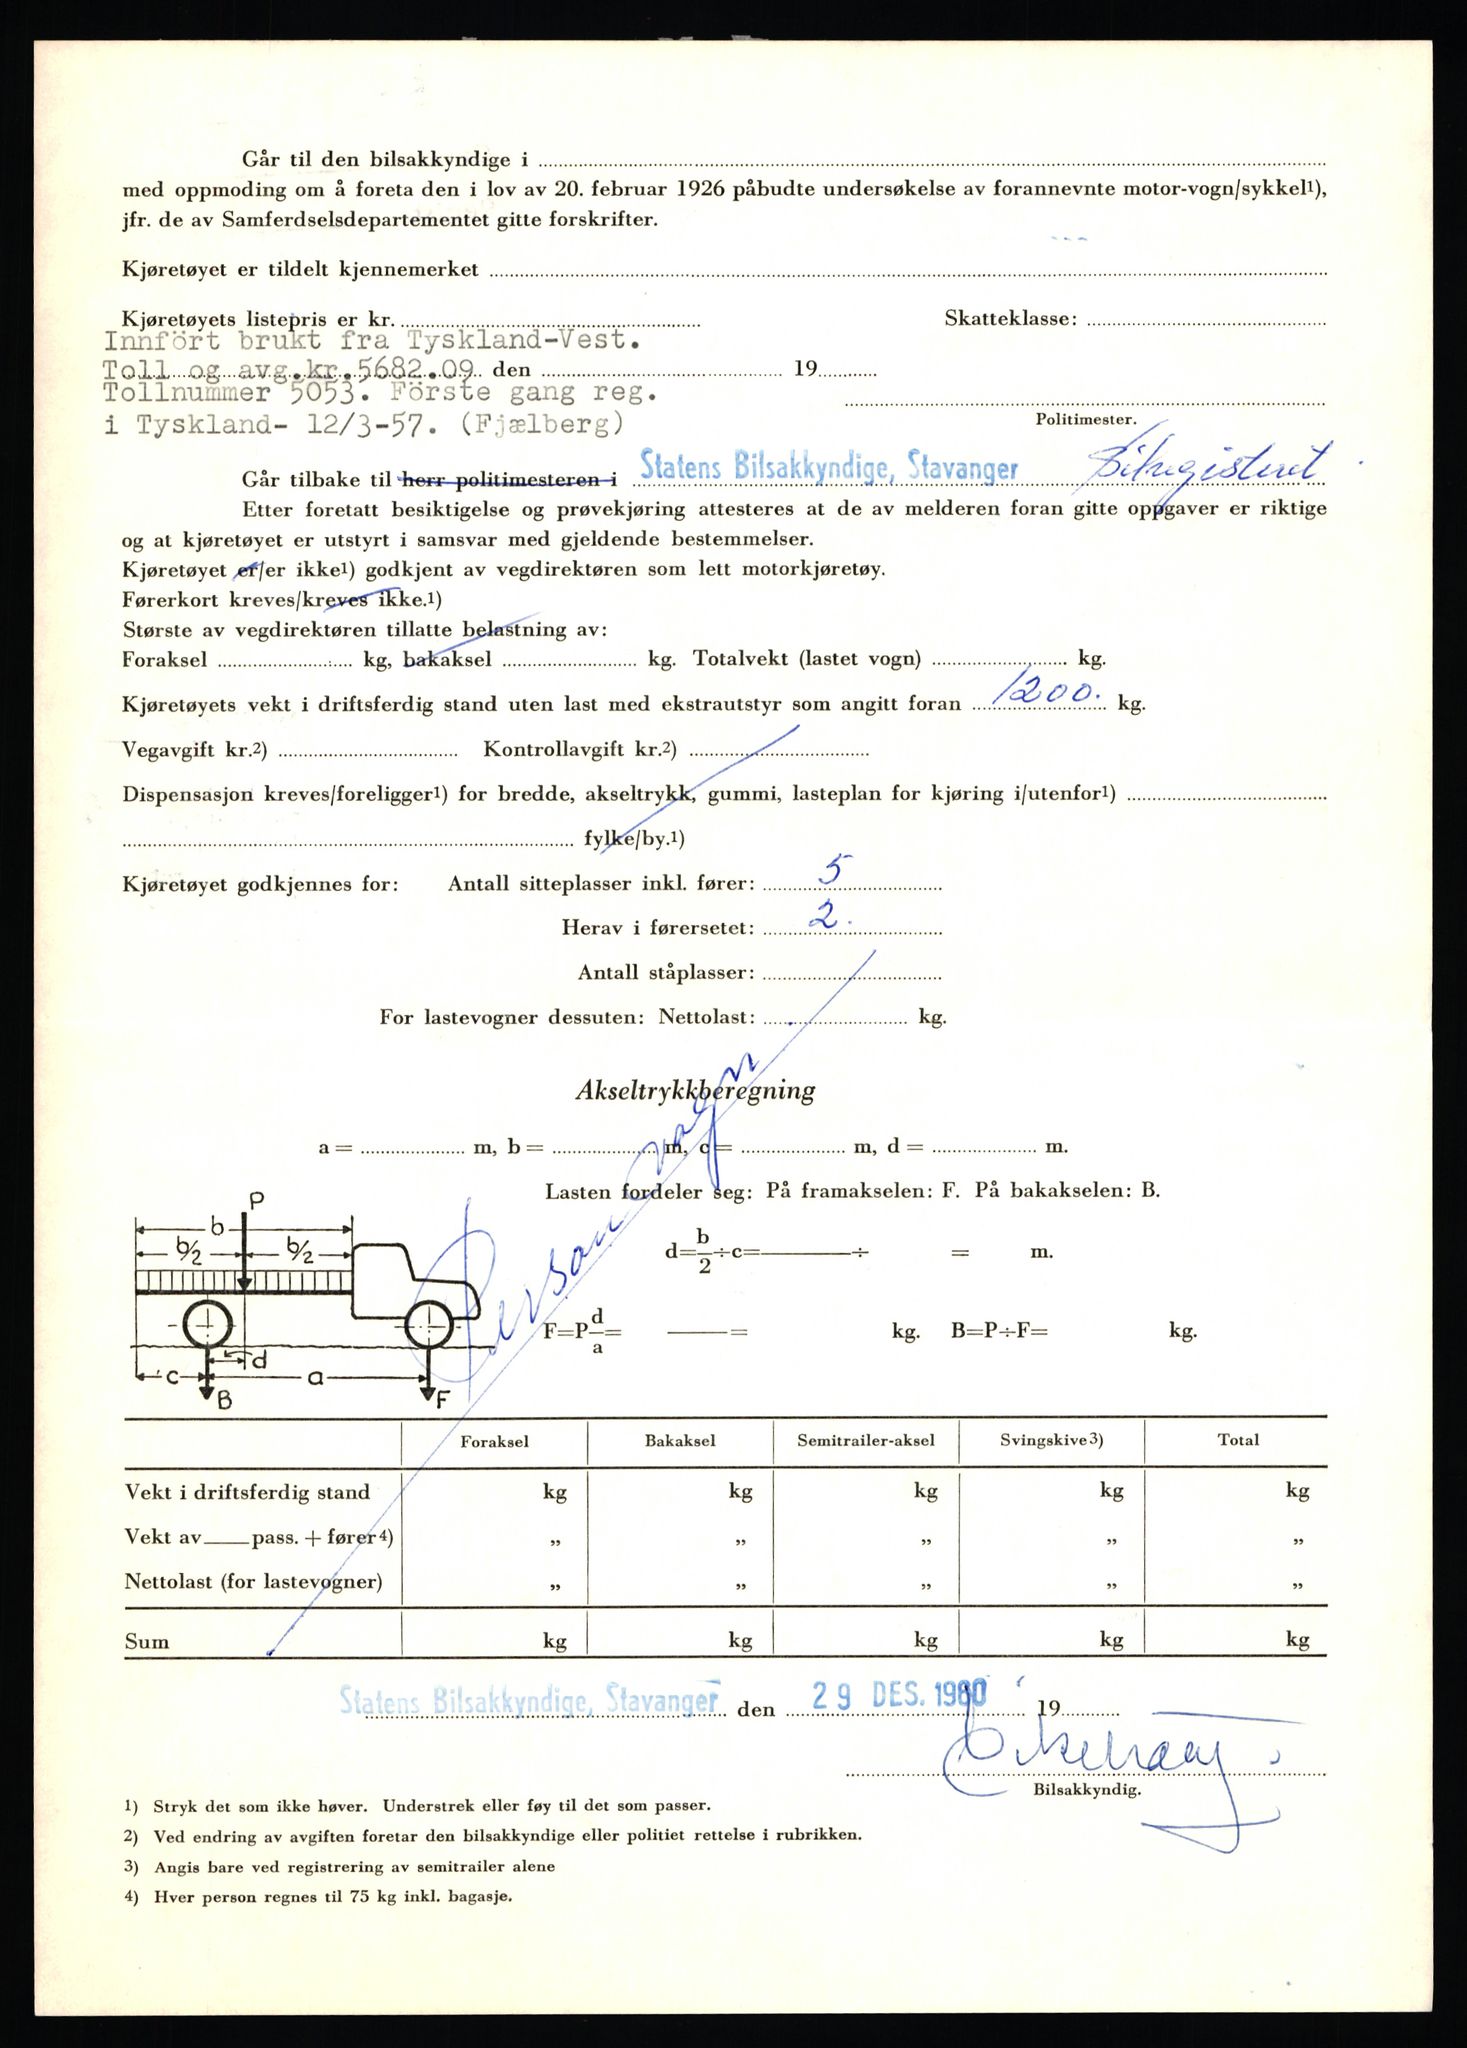 Går til den bilsakkyndige i
med oppmoding om å foreta den i lov av 20. februar 1926 påbudte undersøkelse av forannevnte motor-vogn/sykkel1),
jfr. de av Samferdselsdepartementet gitte forskrifter.
Kjøretøyet er tildelt kjennemerket
Kjøretøyets listepris er kr. Skatteklasse:
Innfört brukt fra Tyskland-Vest.
Toll og avg.kr.5682.09 den 19
Tollnummer 5053. Förste gang reg.
i Tyskland- 12/3-57. (Fjælberg)
Politimester.
Går tilbake til herr politimesteren i Statens Bilsakkyndige, Stavanger Bilregisteret
Etter foretatt besiktigelse og prøvekjøring attesteres at de av melderen foran gitte oppgaver er riktige
og at kjøretøyet er utstyrt i samsvar med gjeldende bestemmelser.
Kjøretøyet er/er ikke1) godkjent av vegdirektøren som lett motorkjøretøy.
Førerkort kreves/kreves ikke.1)
Største av vegdirektøren tillatte belastning av:
Foraksel kg, bakaksel kg. Totalvekt (lastet vogn) kg.
Kjøretøyets vekt i driftsferdig stand uten last med ekstrautstyr som angitt foran 1200. kg.
Vegavgift kr.2) Kontrollavgift kr.2)
Dispensasjon kreves/foreligger1) for bredde, akseltrykk, gummi, lasteplan for kjøring i/utenfor1)
fylke/by.1)
Kjøretøyet godkjennes for: Antall sitteplasser inkl. fører: 5
Herav i førersetet: 2.
Antall ståplasser:
For lastevogner dessuten: Nettolast: kg.
Personvogn
Akseltrykkberegning
a = m, b = m, c = m, d = m.
Lasten fordeler seg: På framakselen: F. På bakakselen: B.
d=b/2÷c= ÷ = m.
F=P d/a= = kg. B=P÷F= kg.
P
b
b/2 b/2
d
c a
B F
Foraksel Bakaksel Semitrailer-aksel Svingskive3) Total
Vekt i driftsferdig stand kg kg kg kg kg
Vekt av pass. + fører4) „ „ „ „ „
Nettolast (for lastevogner) „ „ „ „ „
Sum kg kg kg kg kg
Statens Bilsakkyndige, Stavanger den 29 DES. 1960 19
Bilsakkyndig.
1) Stryk det som ikke høver. Understrek eller føy til det som passer.
2) Ved endring av avgiften foretar den bilsakkyndige eller politiet rettelse i rubrikken.
3) Angis bare ved registrering av semitrailer alene
4) Hver person regnes til 75 kg inkl. bagasje.